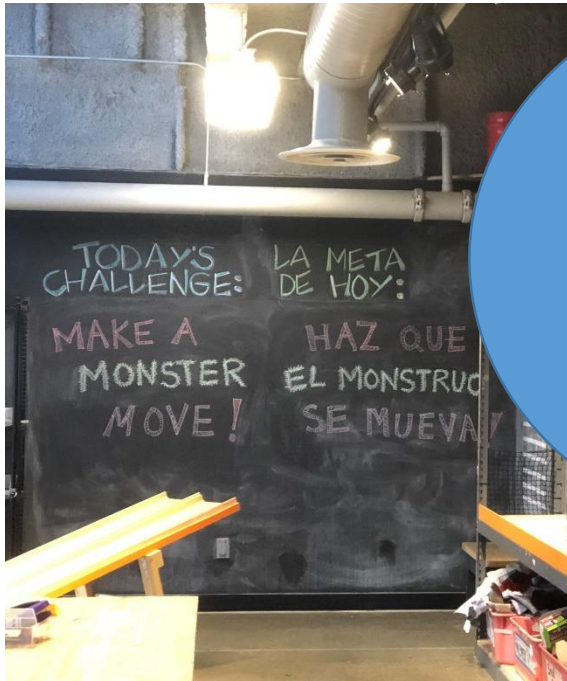 TODAY'S
CHALLENGE:
MAKE A
MONSTER
MOVE!
LA META
DE HOY:
HAZ QUE
EL MONSTRUO
SE MUEVA!